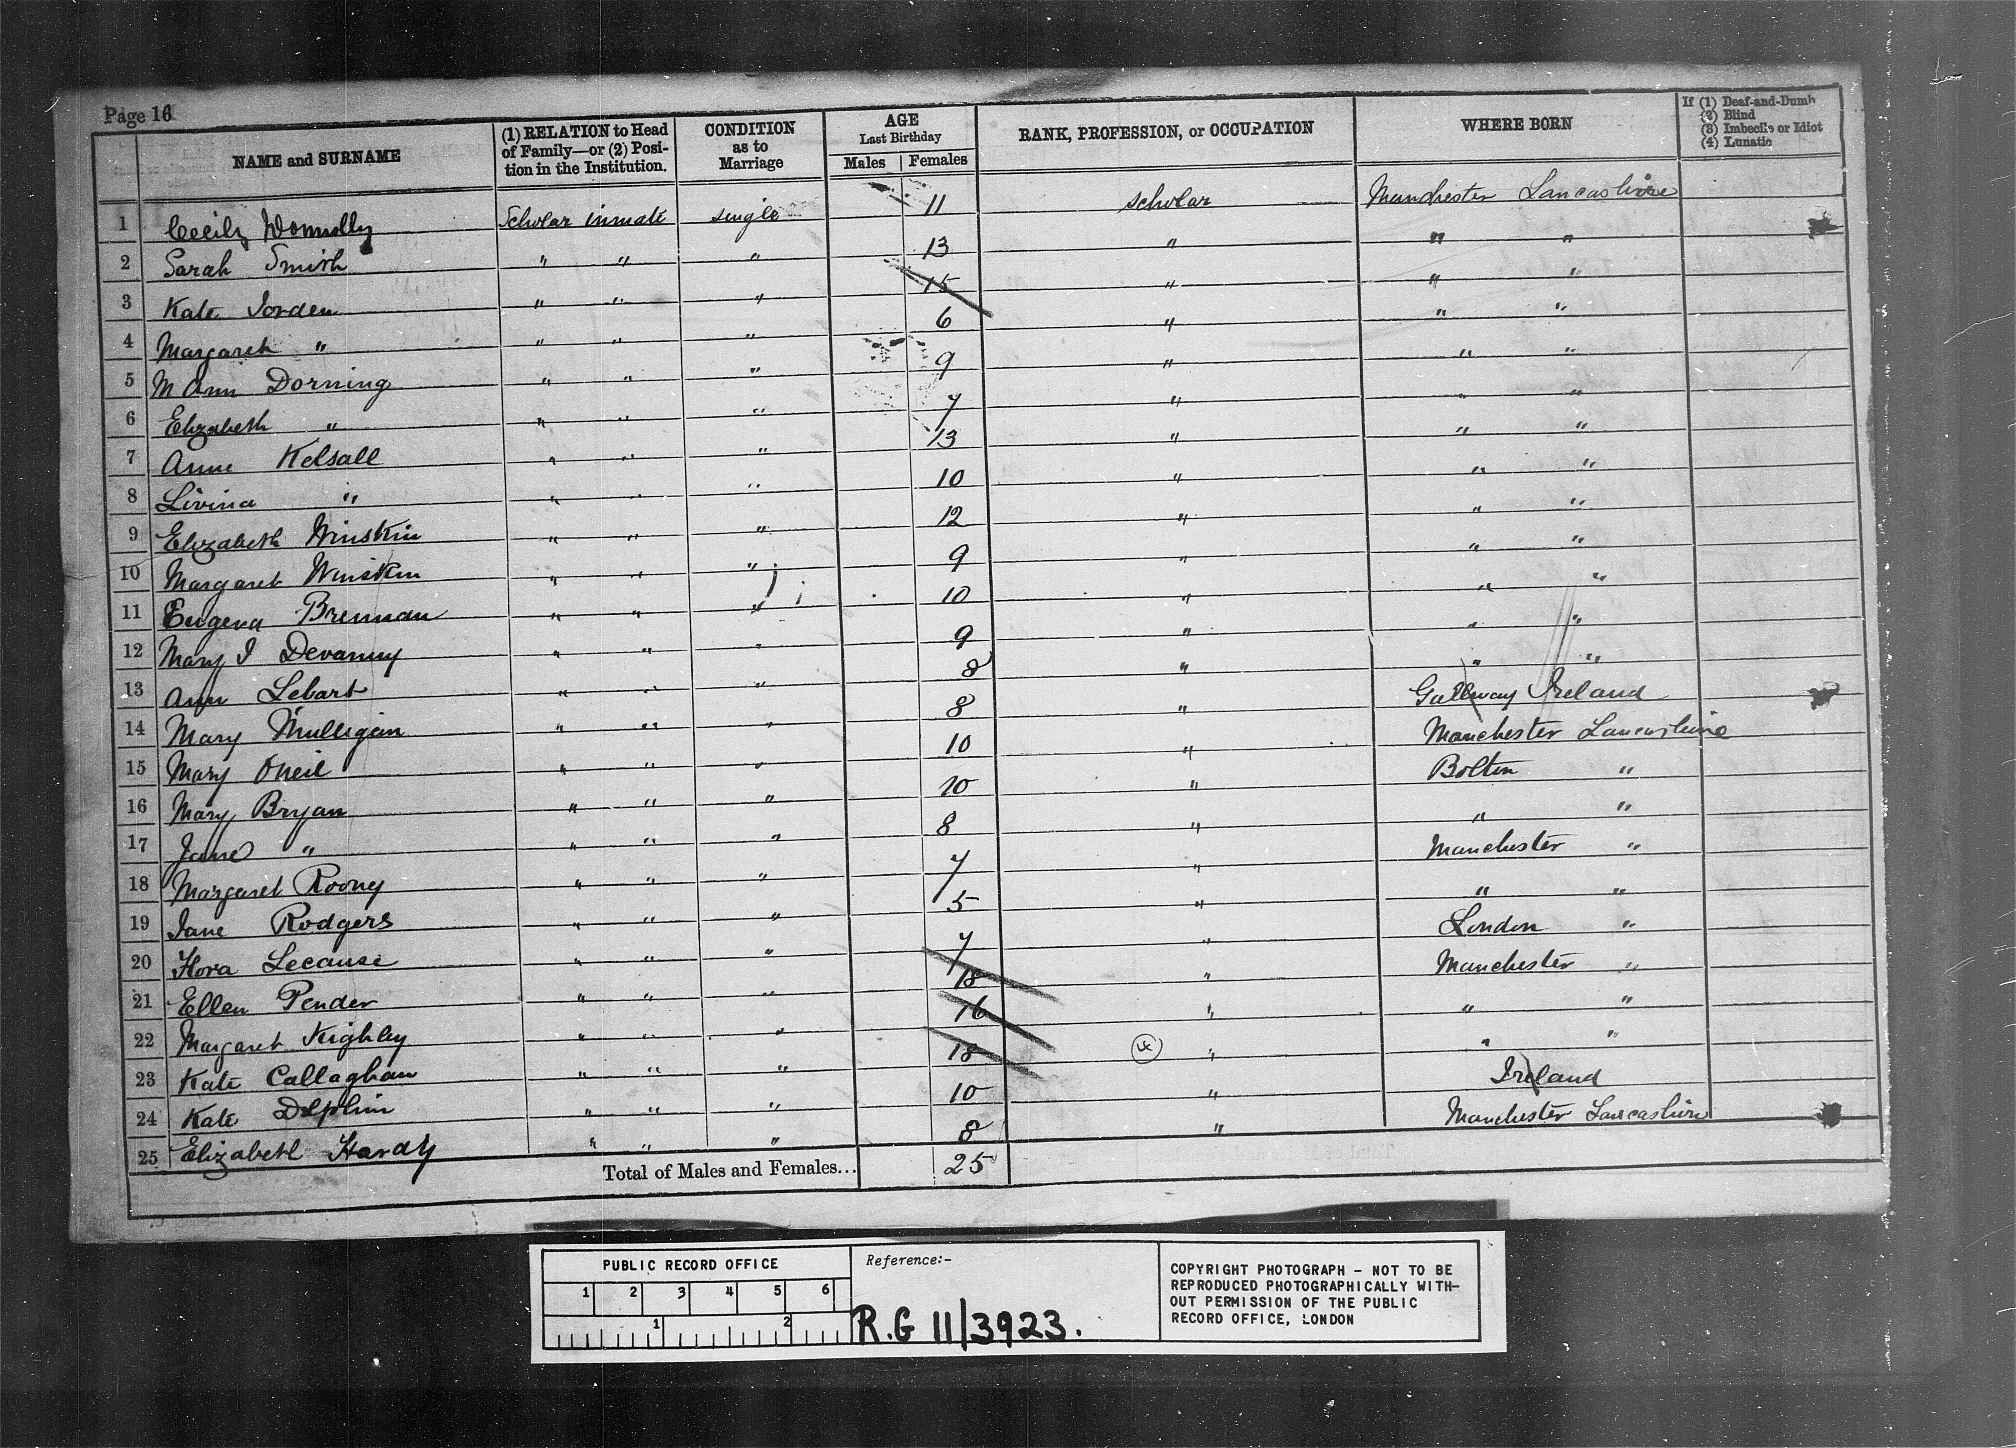 Page 16
NAME and SURNAME | (1) RELATION to Head of Family—or (2) Position in the Institution. | CONDITION as to Marriage | AGE Last Birthday Males Females | RANK, PROFESSION, or OCCUPATION | WHERE BORN | If (1) Deaf-and-Dumb (2) Blind (3) Imbecile or Idiot (4) Lunatic
1 Cecily Donnolly Scholar inmate single 11 scholar Manchester Lancashire
2 Sarah Smith " " " 13 " " "
3 Kate Jorden " " " 15 " " "
4 Margaret " " " " 6 " " "
5 M Ann Dorning " " " 9 " " "
6 Elizabeth " " " " 7 " " "
7 Anne Kelsall " " " 13 " " "
8 Livina " " " " 10 " " "
9 Elizabeth Winskin " " " 12 " " "
10 Margaret Winskin " " " 9 " " "
11 Eugena Brennan " " " 10 " " "
12 Mary J Devanny " " " 9 " " "
13 Ann Lebart " " " 8 " " "
14 Mary Mulligan " " " 8 " Gallway Ireland
15 Mary Oneil " " " 10 " Manchester Lancashire
16 Mary Bryan " " " 10 " Bolton "
17 Jane " " " " 8 " " "
18 Margaret Roony " " " 7 " Manchester "
19 Jane Rodgers " " " 5 " " "
20 Flora Lecause " " " 7 " London "
21 Ellen Pender " " " 18 " Manchester "
22 Margaret Keighley " " " 16 " " "
23 Kate Callaghan " " " 18 " " "
24 Kate Delphin " " " 10 " Ireland
25 Elizabeth Hardy " " " 8 " Manchester Lancashire
Total of Males and Females... 25
PUBLIC RECORD OFFICE
1 2 3 4 5 6
1 2
Reference:-
R.G 11/3923.
COPYRIGHT PHOTOGRAPH - NOT TO BE
REPRODUCED PHOTOGRAPHICALLY WITH-
OUT PERMISSION OF THE PUBLIC
RECORD OFFICE, LONDON